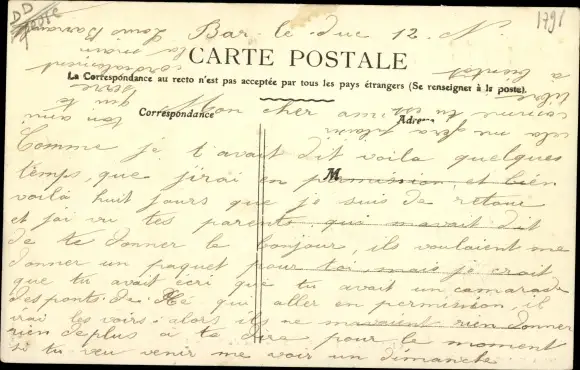 DD
1791
Bar le duc 12 N.
CARTE POSTALE
La Correspondance au recto n'est pas acceptée par tous les pays étrangers (Se renseigner à la poste).
Correspondance
Adresse
M
Mon cher ami
Comme je t'avait dit voila quelques
temps, que jirai en permission, et bien
voilà huit jours que je suis de retour
et jai vu tes parents qui mavait dit
de te donner le bonjour, ils voulaient me
donner un paquet pour toi, mais je croit
que tu avait écri que tu avait un camarade
des ponts de Hé qui aller en permission il
irai les voirs alors ils ne mavaient rien donner
rien de plus à te dire pour le moment
si tu veu venir me voir un dimanche
cela me fera plaisir
comme tu es
libre
à bientot
ton ami
qui te
serre
cordialement
la main
Louis